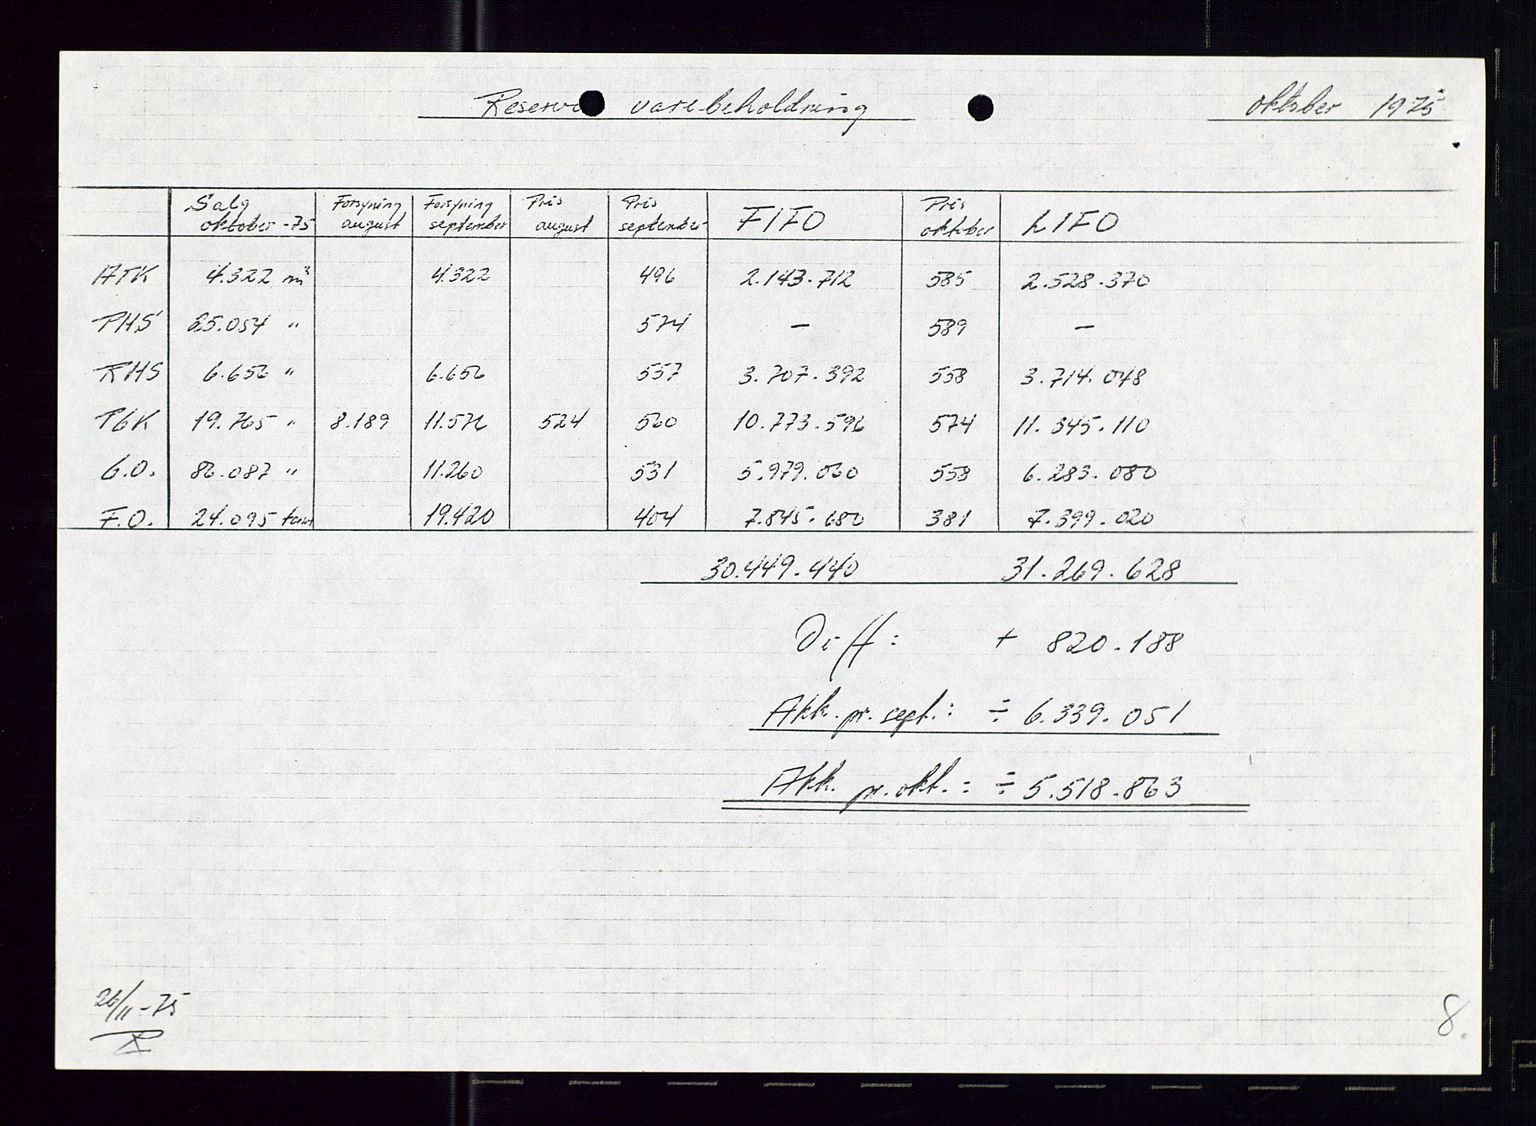 Reserve varebeholdning oktober 1975
Salg oktober -75 Forsyning august Forsyning september Pris august Pris september FIFO Pris oktober LIFO
ATK 4.322 m³ 4.322 496 2.143.712 585 2.528.370
PHS 65.054 " 574 — 589 —
RHS 6.656 " 6.656 557 3.707.392 558 3.714.048
TGK 19.765 " 8.189 11.576 524 560 10.773.596 574 11.345.110
G.O. 86.087 " 11.260 531 5.979.060 558 6.283.080
F.O. 24.095 tonn 19.420 404 7.845.680 381 7.399.020
30.449.440 31.269.628
Diff: + 820.188
Akk. pr. sept.: ÷ 6.339.051
Akk. pr. okt.: ÷ 5.518.863
26/11-75
8.